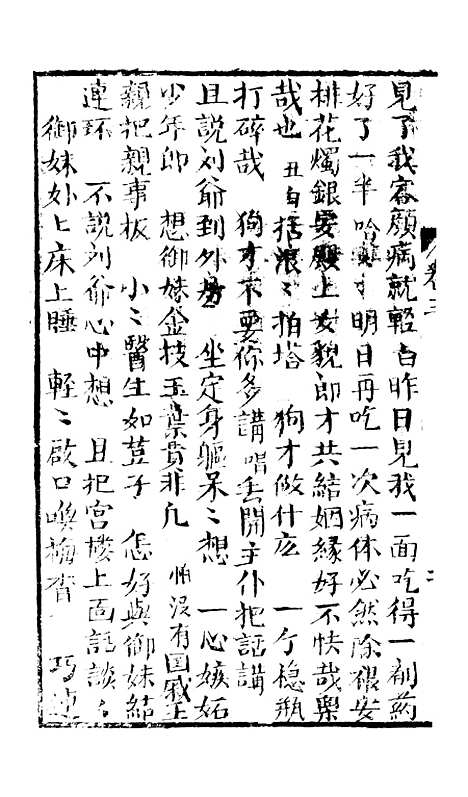 見了我容顏病就輕白昨日見我一面吃得一劑药
好了一半哈明日再吃一次病体必然除根安
排花燭銀安殿上女貌郎才共結姻緣好不快哉樂
哉也 丑白括浪〻拍塔 狗才做什庅 一个穏瓶
打碎哉 狗才不要你多講 唱丢開主仆把話講
且說刘爺到外 坐定身軀呆〻想 一心嫉妬
少年郎 想御妹金枝玉葉貴非凡 怕沒有国戚王
親把親事板 小〻醫生如荳子 怎好與御妹結
連环 不說刘爺心中想 且把宮楼上面話談
御妹外上床上睡 輕〻啟口喚梅香 巧
卷三